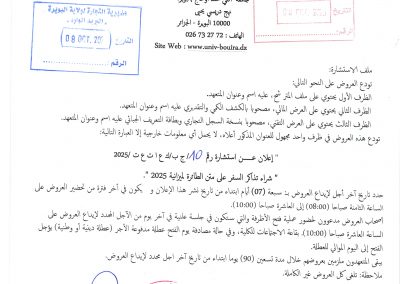 مديرية التجارة لولاية البويرة
نهج دريسي يحيى
10000 البويرة - الجزائر
الهاتف : 72 32 73 026
Site Web : www.univ-bouira.dz
التاريخ
الرقم
ملف الاستشارة:
تودع العروض على النحو التالي:
الظرف الأول يحتوي على ملف الترشح، عليه اسم وعنوان المتعهد.
الظرف الثاني يحتوي على العرض المالي، مصحوبا بالكشف الكمي والتقديري عليه اسم وعنوان المتعهد.
الظرف الثالث يحتوي على العرض التقني، مصحوبا بنسخة السجل التجاري وبطاقة التعريف الجبائي عليه اسم وعنوان المتعهد.
تودع هذه العروض في ظرف واحد مجهول للعنوان المذكور أعلاه، لا يحمل أي معلومات خارجية إلا العبارة التالية:
" إعلان عـــن استشارة رقم 10/ج ب/ك ع ا ت ع ت /2025
" شراء تذاكر السفر على متن الطائرة لميزانية 2025 ".
حدد تاريخ آخر أجل لإيداع العروض بـ: سبعة (07) أيام ابتداء من تاريخ نشر هذا الإعلان و يكون في آخر فترة من تحضير العروض على
الساعة الثامنة صباحا (08:00) إلى العاشرة صباحا (10:00).
اصحاب العروض مدعوون لحضور عملية فتح الأظرفة والتي ستكون في جلسة علنية في آخر يوم من الآجل المحدد لإيداع العروض على
الساعة العاشرة صباحا (10:00). بقاعة الاجتماعات للكلية، وفي حالة مصادفة يوم الفتح عطلة مدفوعة الأجر (عطلة دينية أو وطنية) يؤجل
الفتح إلى اليوم الموالي للعطلة.
يبقى المتعهدون ملزمين بعروضهم خلال مدة تسعين (90) يوما ابتداء من تاريخ آخر اجل محدد لإيداع العروض.
ملاحظة: تلغى كل العروض غير الكاملة.